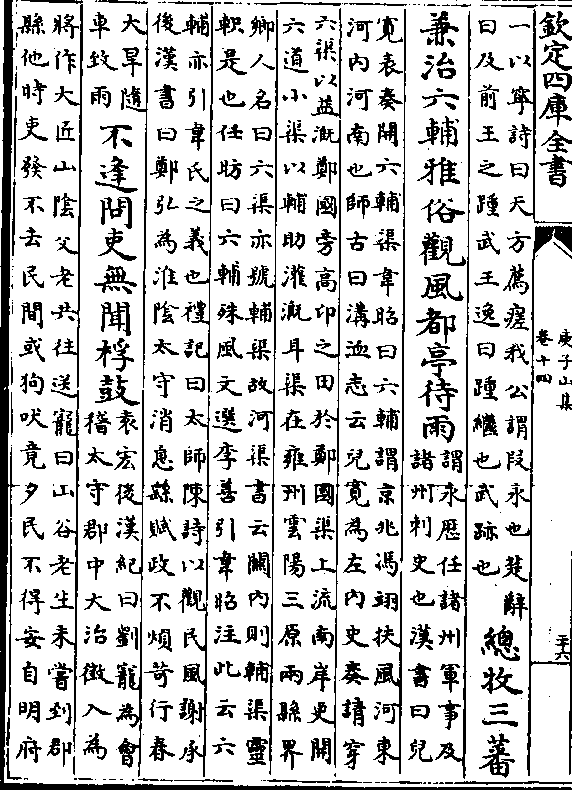 欽定四庫全書
庾子山集
卷十四
一以寧詩曰天方薦瘥我公謂段永也楚辭
曰及前王之踵武王逸曰踵繼也武跡也
總牧三蕃
兼治六輔雅俗觀風都亭待雨
謂永歷任諸州軍事及
諸州刺史也漢書曰兒
寛表奏開六輔渠韋昭曰六輔謂京兆馮翊扶風河東
河內河南也師古曰溝洫志云兒寛為左內史奏請穿
六渠以益溉鄭國旁高卬之田於鄭國渠上流南岸更開
六道小渠以輔助灌溉耳渠在雍州雲陽三原兩縣界
鄉人名曰六渠亦號輔渠故河渠書云關內則輔渠靈
軹是也任昉曰六輔殊風文選李善引韋昭注此云六
輔亦引韋氏之義也禮記曰太師陳詩以觀民風謝承
後漢書曰鄭弘為淮陰太守消息繇賦政不煩苛行春
大旱隨
車致雨
不逢問吏無聞桴鼓
袁宏後漢紀曰劉寵為會
稽太守郡中大治徵入為
將作大匠山陰父老共往送寵曰山谷老生未嘗到郡
縣他時吏發不去民間或狗吠竟夕民不得安自明府